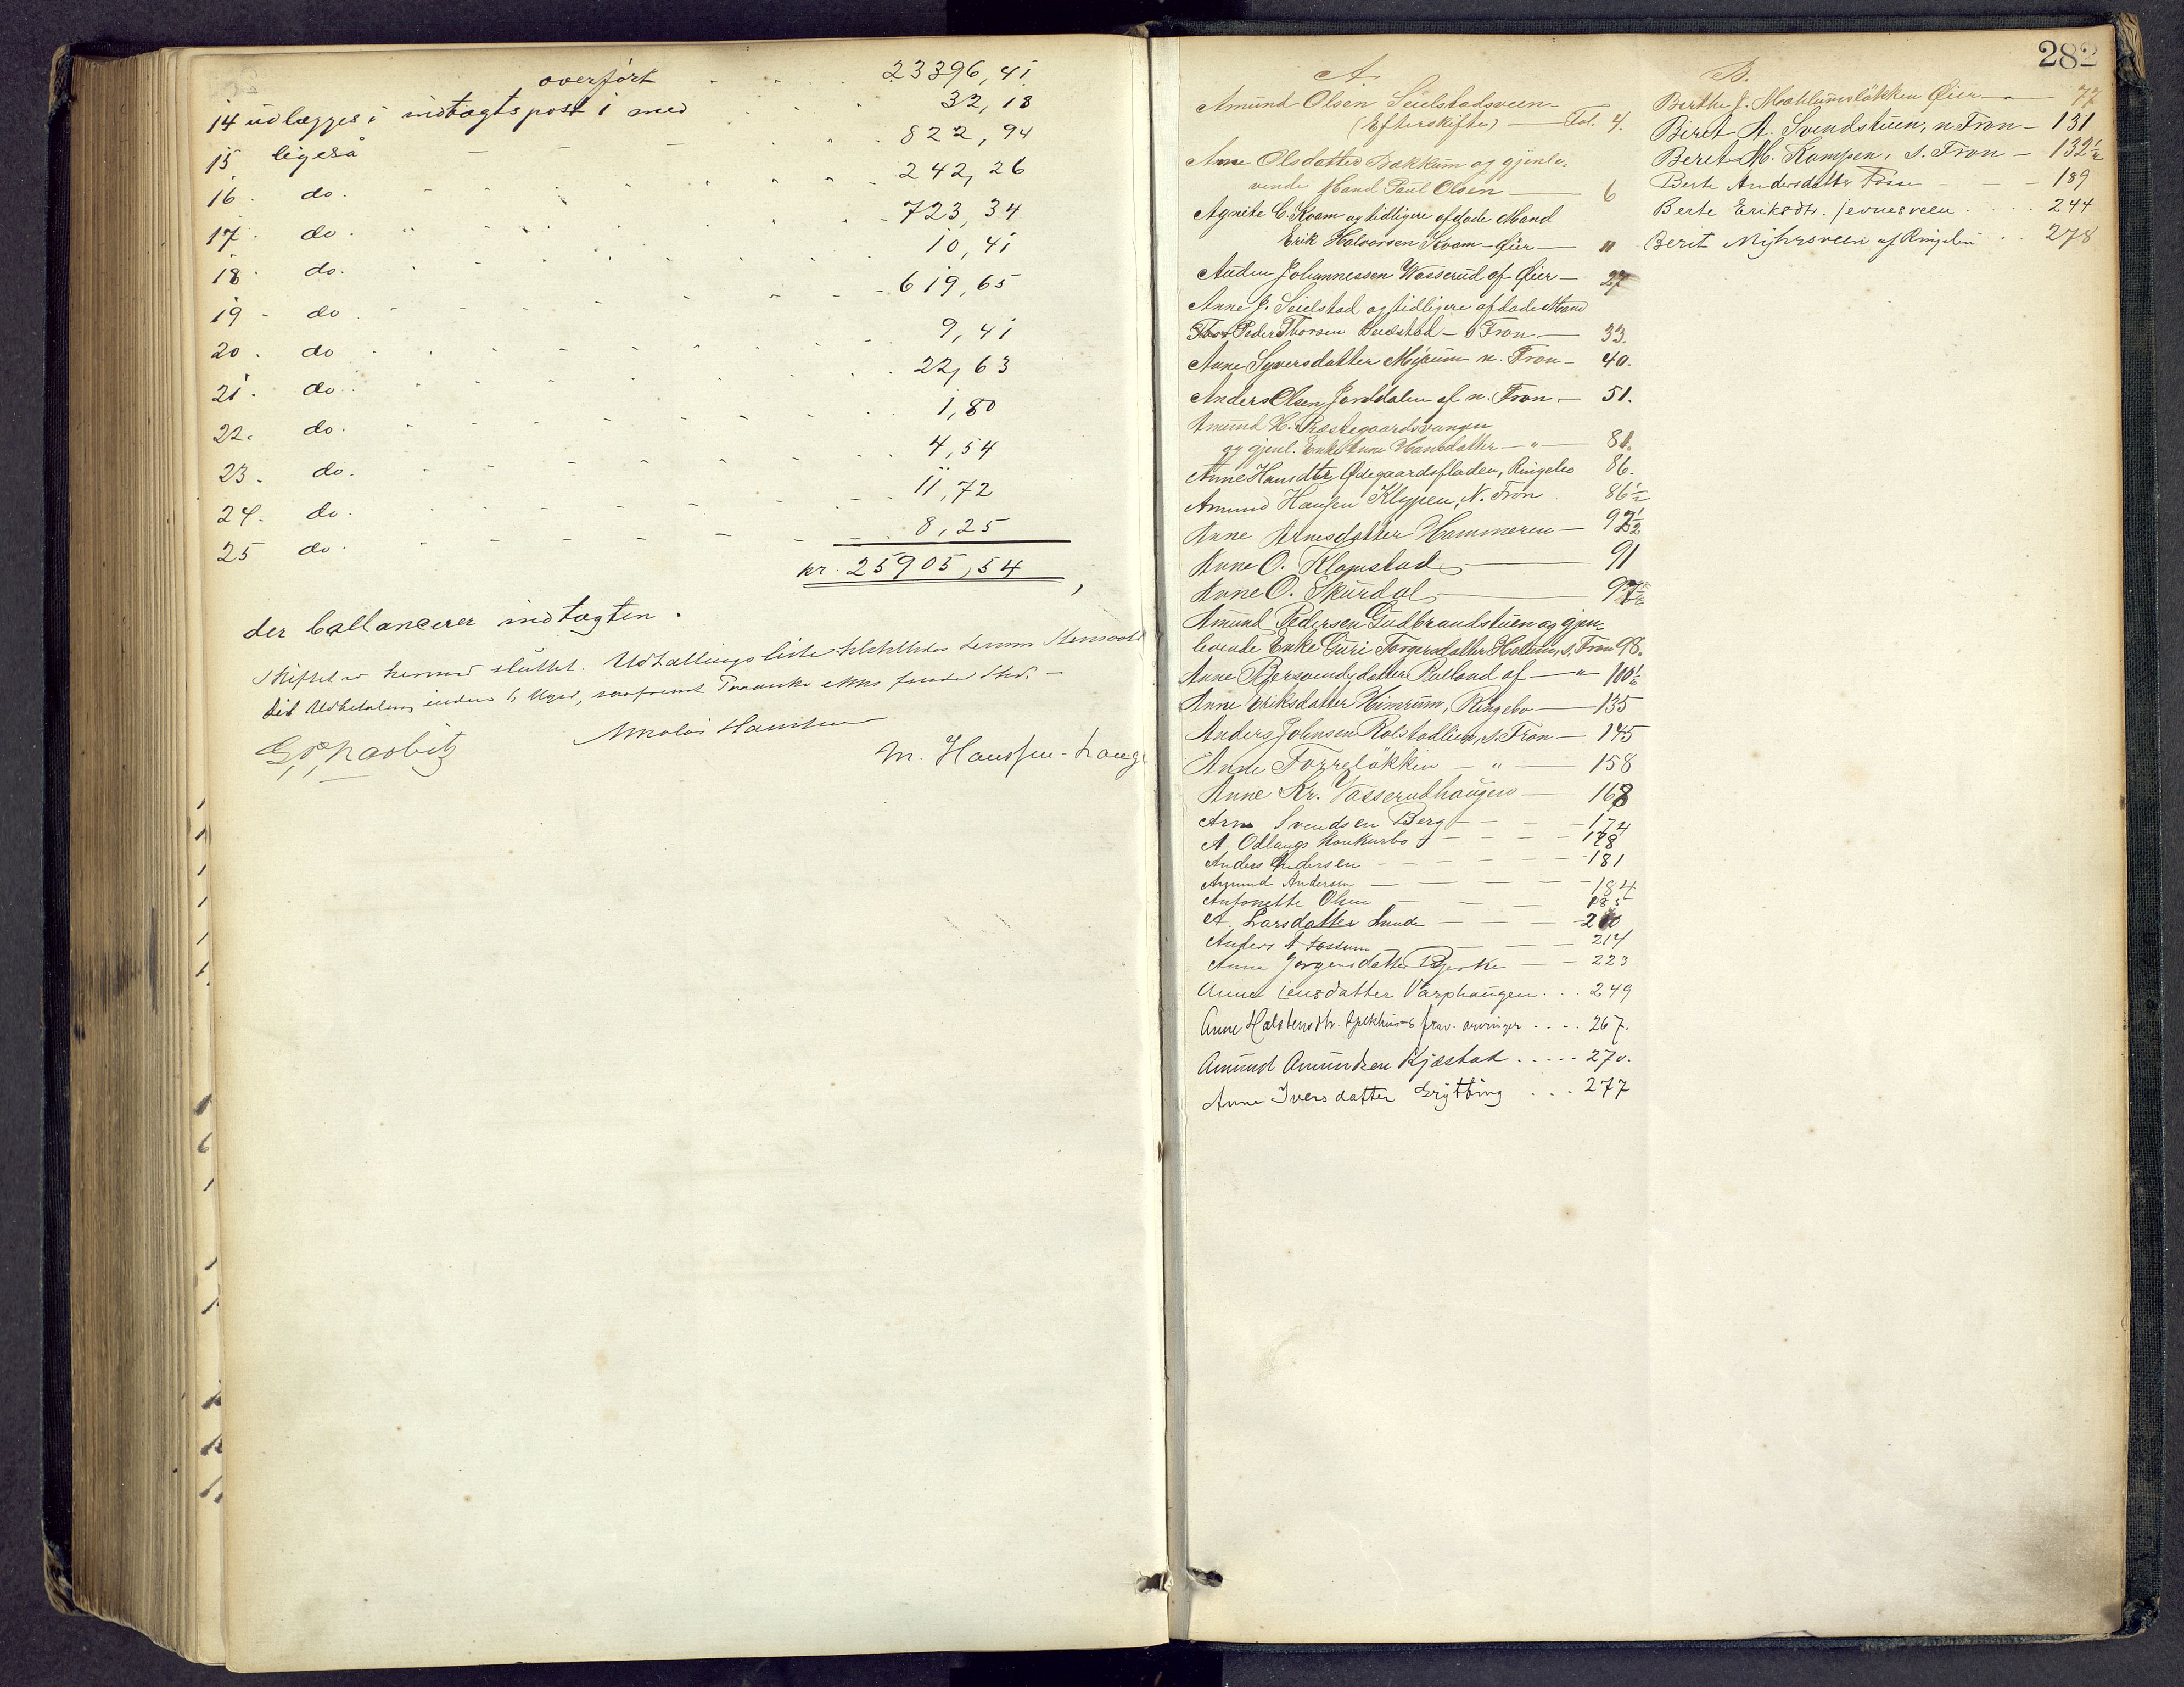 overført 23396,41
14 udlægges i indtægtspost 1 med 32,18
15 ligeså 822,94
16. do. 242,26
17. do. 723,34
18. do. 10,41
19 do. 619,65
20. do 9,41
21. do. 22,63
22. do. 1,80
23. do. 4,54
24. do. 11,72
25 do. 8,25
kr. 25905,54,
der ballancerer indtægten.
Skiftet er hermed sluttet. Udlællingsliste
Udbetaling inden 6 Uger, saafremt Paaanke ikke finder Sted. —
Nikolai Hansen
M. Hanssen-Hauge
282
A.
Amund Olsen Seielstadsveen
(Efterskifte) — Fol. 4.
Anne Olsdatter Bakkum og gjenle-
vende Mand Paul Olsen — 6
Agnete C. Kvam og tidligere afdøde Mand
Erik Halvorsen Kvam – Øier — 11
Auden Johannessen Wasserud af Øier — 27
Anne J. Seielstad og tidligere afdøde Mand
Peder Thorsen Seielstad – Fron — 33.
Anne Syversdatter Myrum n. Fron — 40.
Anders Olsen Jorddalen af n. Fron — 51.
Amund H. Præstegaardsvangen
og gjenl. Enke Anne Hansdatter — " — 81.
Anne Hansdtr Ødegaardsfladen, Ringebo 86.
Amund Hansen Klypen, N. Fron 86½
Anne Arnesdatter Hammeren — 92½
Anne O. Klomstad — 91
Anne O. Skurdal — 97½
Amund Pedersen Gudbrandstuen og gjen-
levende Enke Guri Torgersdatter s. Fron 98.
Anne Bjersvendsdatter Rolland af — " 100½
Anne Eriksdatter Himrum, Ringebo — 135
Anders Johnsen Rolstadlien, s. Fron — 145
Anne Forreløkken — " — 158
Anne Kr. Vasserudhaugen — 168
Arne Svendsen Berg — 174
A. Odlaugs Konkursbo — 178
Anders Andersen — 181
Amund Andersen — 184
Antonette Olsen — 185
A. Larsdatter Lunde — 210
Anders A Fossum — 214
Anne Jørgensdatter Bjerke — 223
Anne Jensdatter Varphaugen . . . 249
Anne Halstensdtr. frav. arvinger . . . . 267.
Amund Amundsen Kjæstad . . . . . 270.
Anne Iversdatter Grytting . . . 277
B.
Berthe J. Mæhlumsløkken Øier — 77
Berit A. Svendstuen, n Fron — 131
Beret M. Kampen, s. Fron — 132½
Berte Andersdatter Fosse — 189
Berte Eriksdtr. Jevnesveen . . . 244
Berit Myhrsveen af Ringebu . . 278